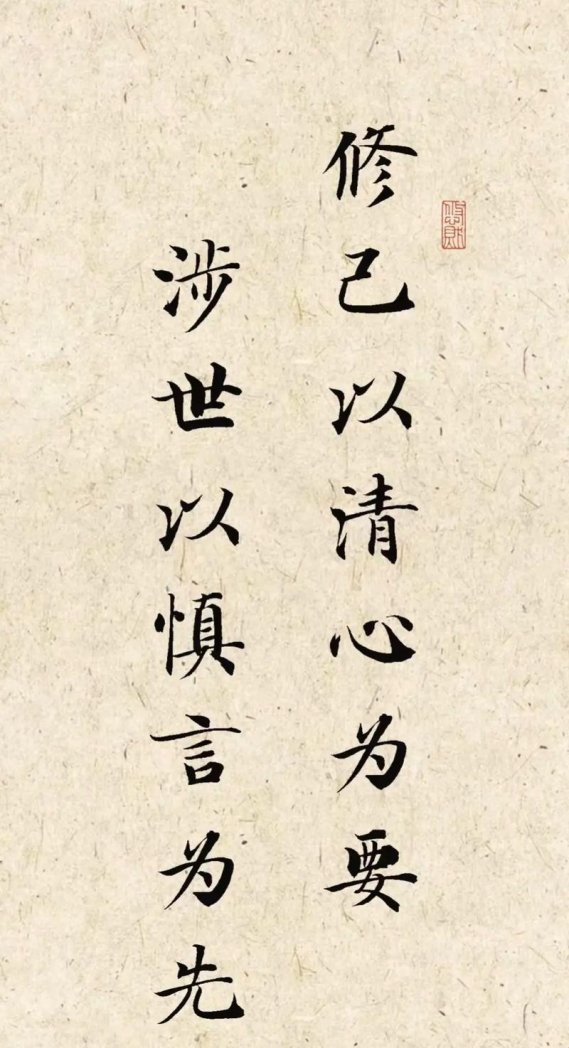 修己以清心为要
涉世以慎言为先